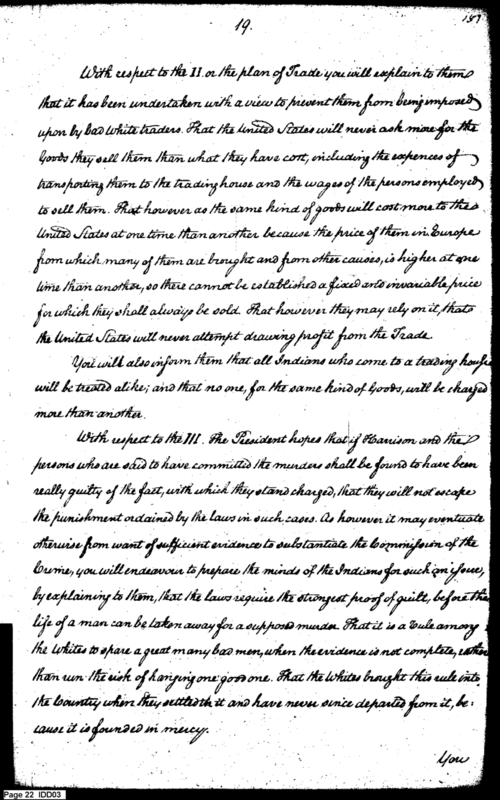 19.
187
With respect to the II. or the plan of Trade you will explain to them
that it has been undertaken with a view to prevent them from being imposed
upon by bad white traders. That the United States will never ask more for the
Goods they sell them than what they have cost, including the expences of
transporting them to the trading house and the wages of the persons employed
to sell them. That however as the same kind of goods will cost more to the
United States at one time than another because the price of them in Europe
from which many of them are brought and from other causes, is higher at one
time than another, so there cannot be established a fixed and invariable price
for which they shall always be sold. That however they may rely on it, that
the United States will never attempt drawing profit from the Trade
You will also inform them that all Indians who come to a trading house
will be treated alike; and that no one, for the same kind of Goods, will be charged
more than another.
With respect to the III. The President hopes that if Harrison and the
persons who are said to have committed the murders shall be found to have been
really guilty of the fact, with which they stand charged, that they will not escape
the punishment ordained by the laws in such cases. As however it may eventuate
otherwise from want of sufficient evidence to substantiate the Commission of the
Crime, you will endeavour to prepare the minds of the Indians for such an issue,
by explaining to them, that the laws require the strongest proof of guilt, before the
life of a man can be taken away for a supposed murder. That it is a rule among
the Whites to spare a great many bad men, when the evidence is not complete, rather
than run the risk of hanging one good one. That the Whites brought this rule into
the Country when they settled it and have never since departed from it, be-
cause it is founded in mercy.
You
Page 22 IDD03